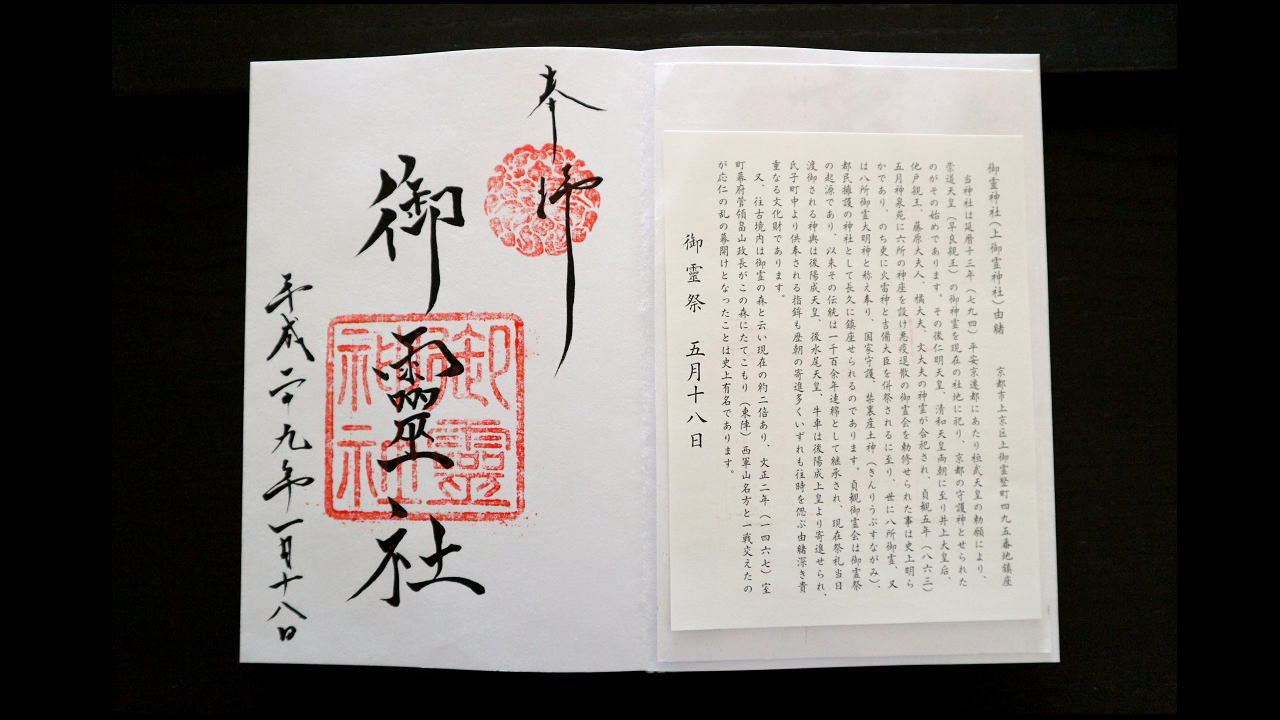 御霊神社(上御霊神社)由緒
京都市上京区上御霊竪町四九五番地鎮座
当神社は延暦十三年(七九四)平安京遷都にあたり桓武天皇の勅願により、
崇道天皇(早良親王)の御神霊を現在の社地に祀り、京都の守護神とせられた
のがその始めであります。その後仁明天皇、清和天皇両朝に至り井上大皇后、
他戸親王、藤原大夫人、橘大夫、文大夫の神霊が合祀され、貞観五年(八六三)
五月神泉苑に六所の神座を設け悪疫退散の御霊会を勅修せられた事は史上明ら
かであり、のち更に火雷神と吉備大臣を併祭されるに至り、世に八所御霊、又
は八所御霊大明神と称え奉り、国家守護、禁裏産土神(きんりうぶすながみ)、
都民擁護の神社として長久に鎮座せられるのであります。貞観御霊会は御霊祭
の起源であり、以来その伝統は一千百余年連綿として継承され、現在祭礼当日
渡御される神輿は後陽成天皇、後水尾天皇、牛車は後陽成上皇より寄進せられ、
氏子町中より供奉される指鉾も歴朝の寄進多くいずれも往時を偲ぶ由緒深き貴
重なる文化財であります。
又、往古境内は御霊の森と云い現在の約二倍あり、文正二年(一四六七)室
町幕府管領畠山政長がこの森にたてこもり(東陣)西軍山名方と一戦交えたの
が応仁の乱の幕開けとなったことは史上有名であります。
御霊祭 五月十八日
奉拝
御靈社
御靈神社
平成二十九年一月十八日